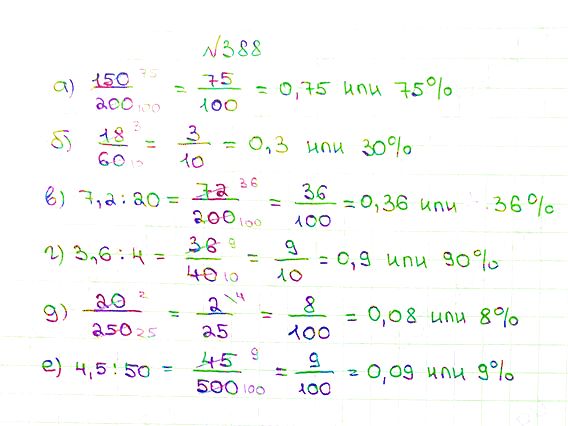 №388
а) 150/200 75/100 = 75/100 = 0,75 или 75%
б) 18/60 3/10 = 3/10 = 0,3 или 30%
в) 7,2 : 20 = 72/200 36/100 = 36/100 = 0,36 или 36%
г) 3,6 : 4 = 36/40 9/10 = 9/10 = 0,9 или 90%
д) 20/250 2/25 = 2/25 \4 = 8/100 = 0,08 или 8%
е) 4,5 : 50 = 45/500 9/100 = 9/100 = 0,09 или 9%